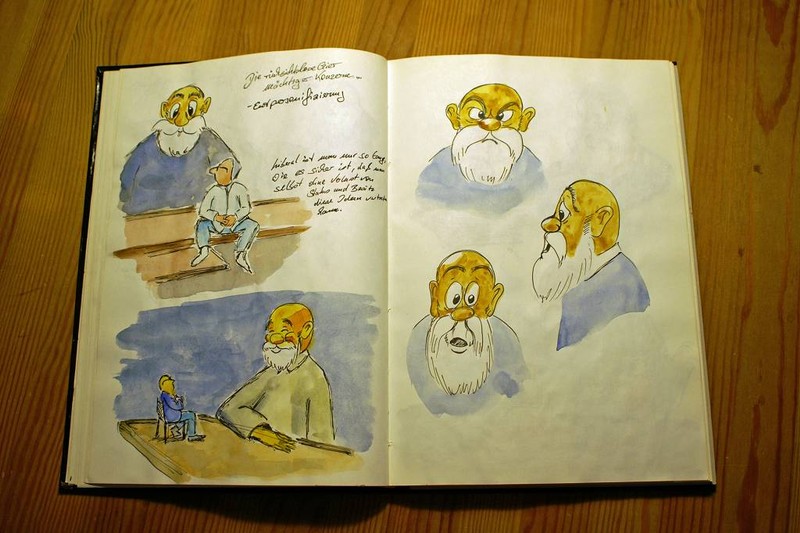 Die unsichtbare Gier
mächtiger Konzerne -
- Entpersonifizierung
liberal ist man nur so lang,
Die es sicher ist, daß man
selbst ohne Verlust von
Status und Besitz
diese Ideen vertreten
kann.